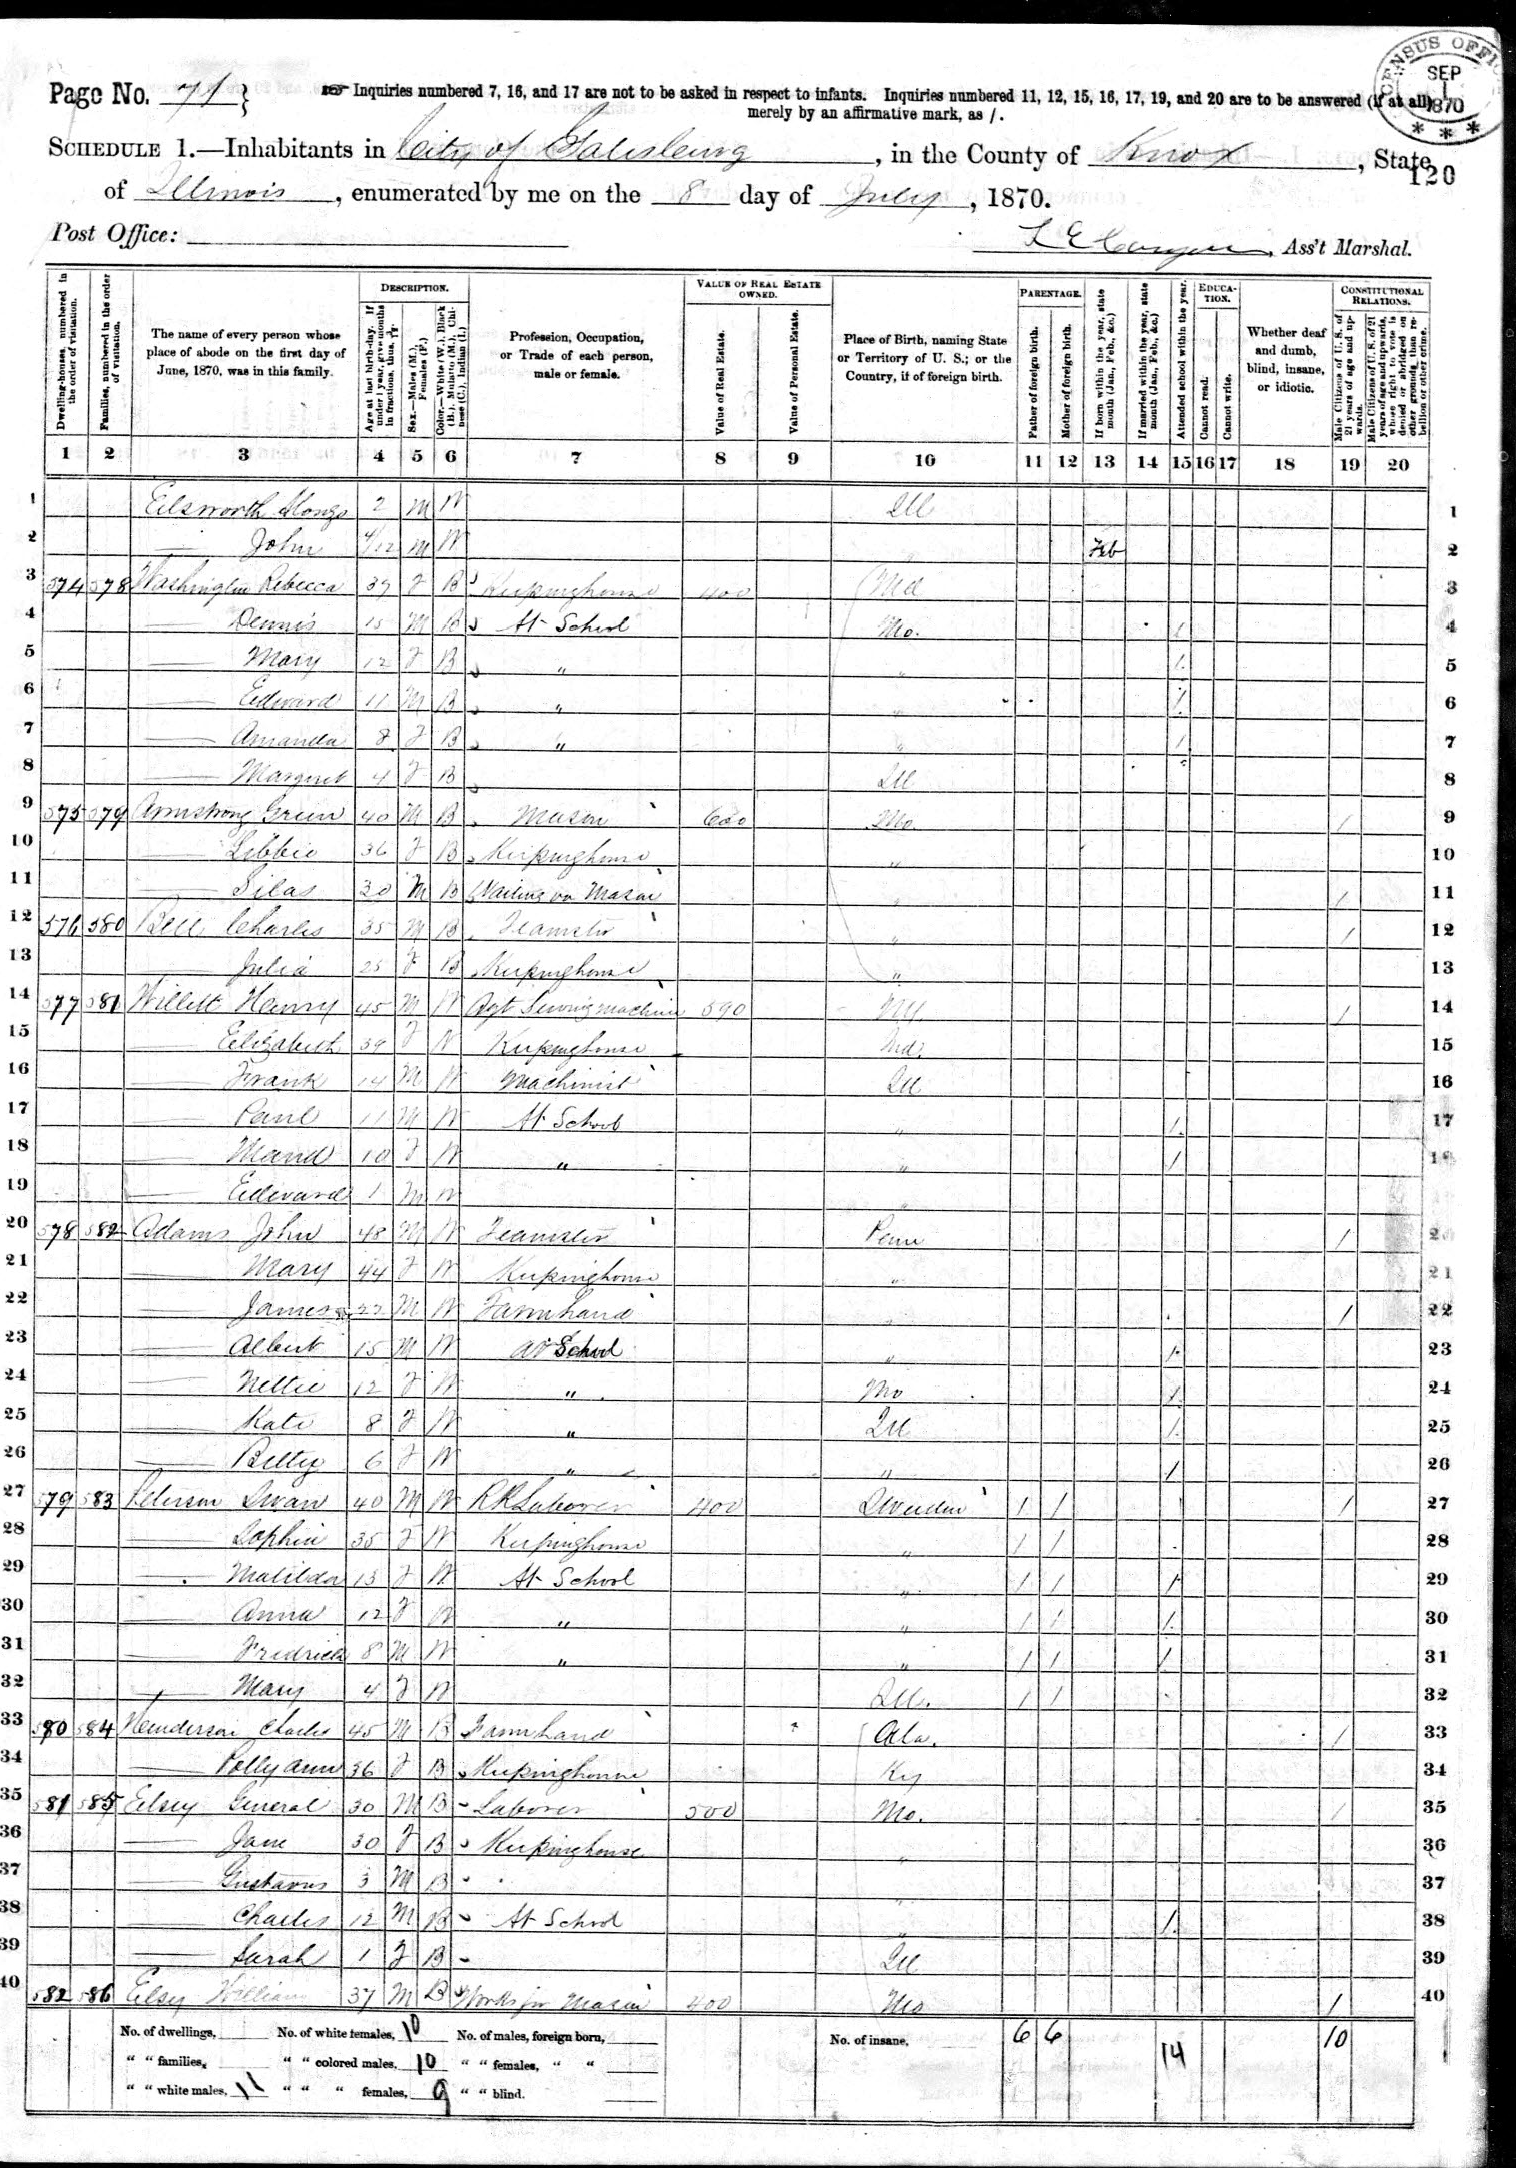 Page No. 71 }
Inquiries numbered 7, 16, and 17 are not to be asked in respect to infants. Inquiries numbered 11, 12, 15, 16, 17, 19, and 20 are to be answered (if at all)
merely by an affirmative mark, as /.
CENSUS OFFICE SEP 1 1870
SCHEDULE 1.—Inhabitants in City of Galesburg, in the County of Knox, State
120
of Illinois, enumerated by me on the 8 day of July, 1870.
Post Office:
Ass't Marshal.
Dwelling-houses, numbered in the order of visitation.
Families, numbered in the order of visitation.
The name of every person whose place of abode on the first day of June, 1870, was in this family.
DESCRIPTION.
Age at last birth-day. If under 1 year, give months in fractions, thus,
Sex.—Males (M.), Females (F.)
Color.—White (W.), Black (B.), Mulatto (M.), Chinese (C.), Indian (I.)
Profession, Occupation, or Trade of each person, male or female.
VALUE OF REAL ESTATE OWNED.
Value of Real Estate.
Value of Personal Estate.
Place of Birth, naming State or Territory of U. S.; or the Country, if of foreign birth.
PARENTAGE.
Father of foreign birth.
Mother of foreign birth.
If born within the year, state month (Jan., Feb., &c.)
If married within the year, state month (Jan., Feb., &c.)
Attended school within the year.
EDUCATION.
Cannot read.
Cannot write.
Whether deaf and dumb, blind, insane, or idiotic.
CONSTITUTIONAL RELATIONS.
Male Citizens of U. S. of 21 years of age and upwards.
Male Citizens of U. S. of 21 years of age and upwards, whose right to vote is denied or abridged on other grounds than rebellion or other crime.
1 2 3 4 5 6 7 8 9 10 11 12 13 14 15 16 17 18 19 20
1 Elsworth Alonzo 2 M W Ill 1
2 — John 4/12 M W Feb 2
3 574 578 Washington Rebecca 37 F B Keepinghouse 400 Md 3
4 — Dennis 15 M B At School Mo. / 4
5 — Mary 12 F B " " / 5
6 — Edward 11 M B " " / 6
7 — Amanda 8 F B " " / 7
8 — Margret 4 F B Ill 8
9 575 579 Armstrong Green 40 M B Mason 600 Mo. / 9
10 — Libbie 36 F B Keepinghouse " 10
11 — Silas 30 M B Waiting on Mason " / 11
12 576 580 Bell Charles 35 M B Teamster " / 12
13 — Julia 25 F B Keepinghouse " 13
14 577 581 Willett Henry 45 M W Agt Sewingmachine 590 NY / 14
15 — Elizabeth 39 F W Keepinghouse Ind. 15
16 — Frank 14 M W Machinist Ill 16
17 — Paul 11 M W At School " / 17
18 — Maud 10 F W " " / 18
19 — Edward 1 M W " 19
20 578 582 Adams John 48 M W Teamster Penn / 20
21 — Mary 44 F W Keepinghouse " 21
22 — James 22 M W Farmhand " / 22
23 — Albert 15 M W At School " / 23
24 — Nettie 12 F W " Mo / 24
25 — Kate 8 F W " Ill / 25
26 — Betty 6 F W " " / 26
27 579 583 Peterson Swan 40 M W RR Laborer 400 Sweeden / / / 27
28 — Sophia 35 F W Keepinghouse " / / 28
29 — Matilda 13 F W At School " / / / 29
30 — Anna 12 F W " " / / / 30
31 — Fredrick 8 M W " " / / / 31
32 — Mary 4 F W Ill. / / 32
33 580 584 Henderson Charles 45 M B Farmhand Ala. / 33
34 — Polly Ann 36 F B Keepinghouse Ky 34
35 581 585 Elsey General 30 M B Laborer 500 Mo. / 35
36 — Jane 30 F B Keepinghouse " 36
37 — Gustavus 3 M B " 37
38 — Charles 12 M B At School " / 38
39 — Sarah 1 F B Ill 39
40 582 586 Elsey William 37 M B Works for Mason 400 Mo / 40
No. of dwellings, No. of white females, 10 No. of males, foreign born, No. of insane, 6 6 14 10
" " families, " " colored males, 10 " " females, " "
" " white males, 11 " " " females, 9 " " blind.